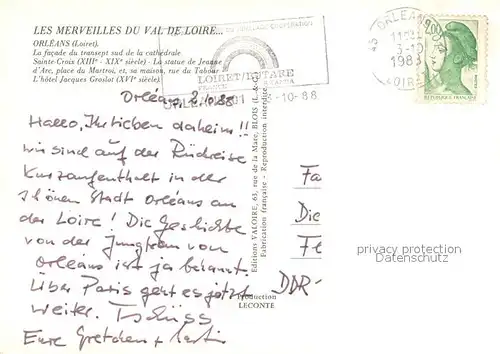 LES MERVEILLES DU VAL DE LOIRE...
ORLÉANS (Loiret).
La façade du transept sud de la cathédrale
Sainte-Croix (XIIIe - XIXe siècle) - La statue de Jeanne
d'Arc, place du Martroi, et, sa maison, rue du Tabour
L'hôtel Jacques Groslot (XVIe siècle)
COOPERATION
LOIRET/BUTARE
3-10-88
45 ORLEANS
3-10
1988
LOIRET
2,00
REPUBLIQUE FRANÇAISE
Orléans, 2.10.88
Hallo, Ihr lieben daheim!!
wir sind auf der Rückreise
Kurzaufenthalt in der
schönen Stadt Orléans an
der Loire! Die Geschichte
von der Jungfrau von
Orléans ist ja bekannt.
Über Paris geht es jetzt
weiter. Tschüss
Eure Gretchen + Martin
Editions VALOIRE, 63, rue de la Mare, BLOIS (L.-&-C.)
Fabrication française - Reproduction interdite
Production
LECONTE
Fa
Die
Fe
DDR-
privacy protection
Datenschutz